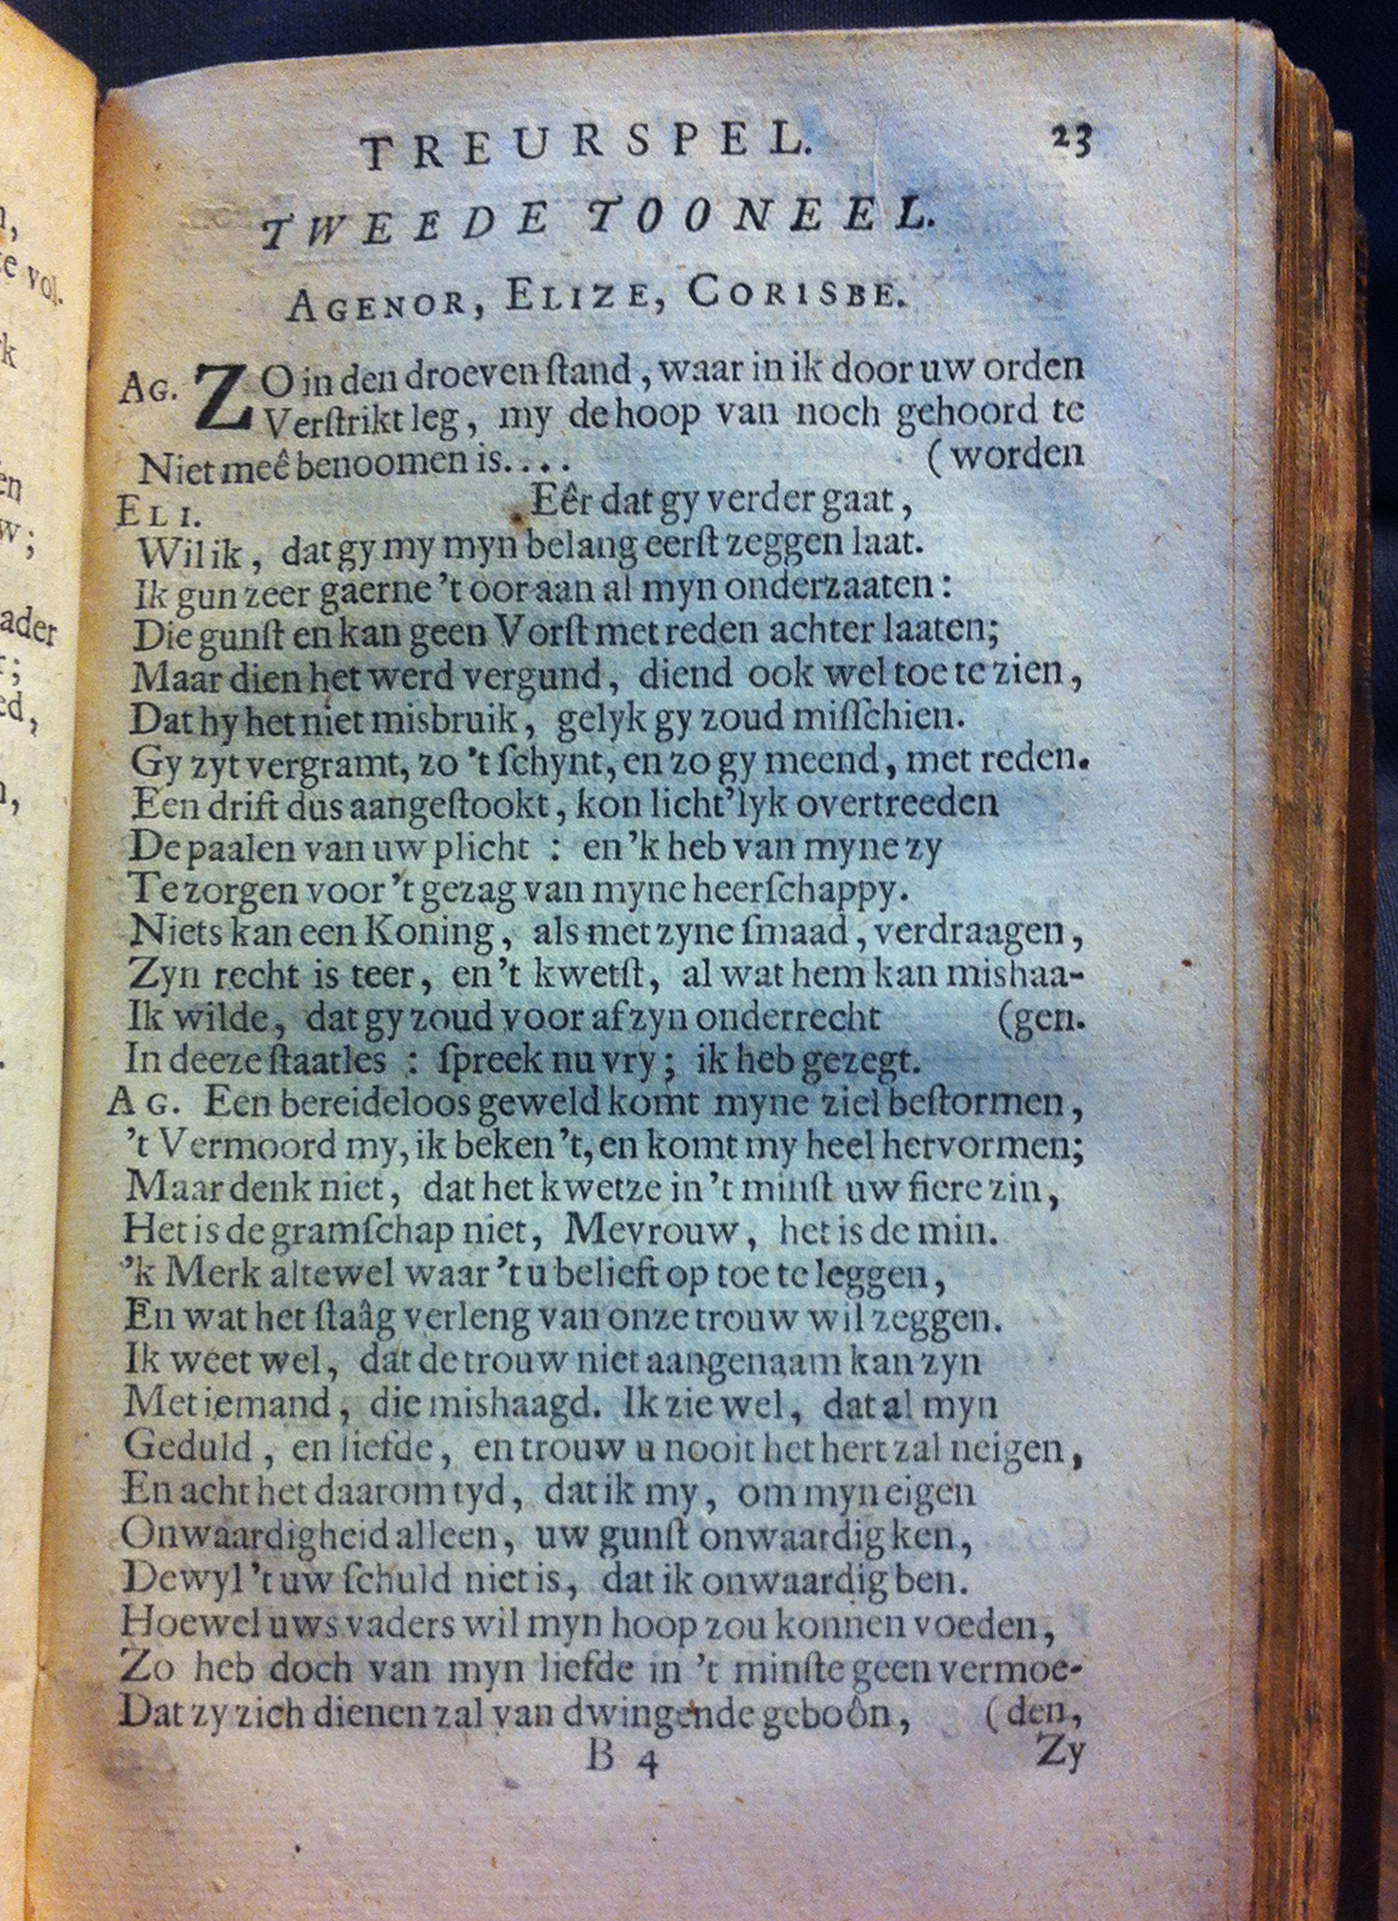 TREURSPEL. 23
TWEEDE TOONEEL.
AGENOR, ELIZE, CORISBE.
AG. ZO in den droeven ſtand, waar in ik door uw orden
Verſtrikt leg, my de hoop van noch gehoord te
Niet meê benoomen is.... (worden
ELI. Eêr dat gy verder gaat,
Wil ik, dat gy my myn belang eerſt zeggen laat.
Ik gun zeer gaerne 't oor aan al myn onderzaaten:
Die gunſt en kan geen Vorſt met reden achter laaten;
Maar dien het werd vergund, diend ook wel toe te zien,
Dat hy het niet misbruik, gelyk gy zoud miſſchien.
Gy zyt vergramt, zo 't ſchynt, en zo gy meend, met reden.
Een drift dus aangeſtookt, kon licht'lyk overtreeden
De paalen van uw plicht : en 'k heb van myne zy
Te zorgen voor 't gezag van myne heerſchappy.
Niets kan een Koning, als met zyne ſmaad, verdraagen,
Zyn recht is teer, en 't kwetſt, al wat hem kan mishaa-
Ik wilde, dat gy zoud voor af zyn onderrecht (gen.
In deeze ſtaatles : ſpreek nu vry; ik heb gezegt.
AG. Een bereideloos geweld komt myne ziel beſtormen,
't Vermoord my, ik beken 't, en komt my heel hervormen;
Maar denk niet, dat het kwetze in 't minſt uw fiere zin,
Het is de gramſchap niet, Mevrouw, het is de min.
'k Merk altewel waar 't u belieft op toe te leggen,
En wat het ſtaâg verleng van onze trouw wil zeggen.
Ik weet wel, dat de trouw niet aangenaam kan zyn
Met iemand, die mishaagd. Ik zie wel, dat al myn
Geduld, en liefde, en trouw u nooit het hert zal neigen,
En acht het daarom tyd, dat ik my, om myn eigen
Onwaardigheid alleen, uw gunſt onwaardig ken,
Dewyl 't uw ſchuld niet is, dat ik onwaardig ben.
Hoewel uws vaders wil myn hoop zou konnen voeden,
Zo heb doch van myn liefde in 't minſte geen vermoe-
Dat zy zich dienen zal van dwingende geboôn, (den,
B 4 Zy